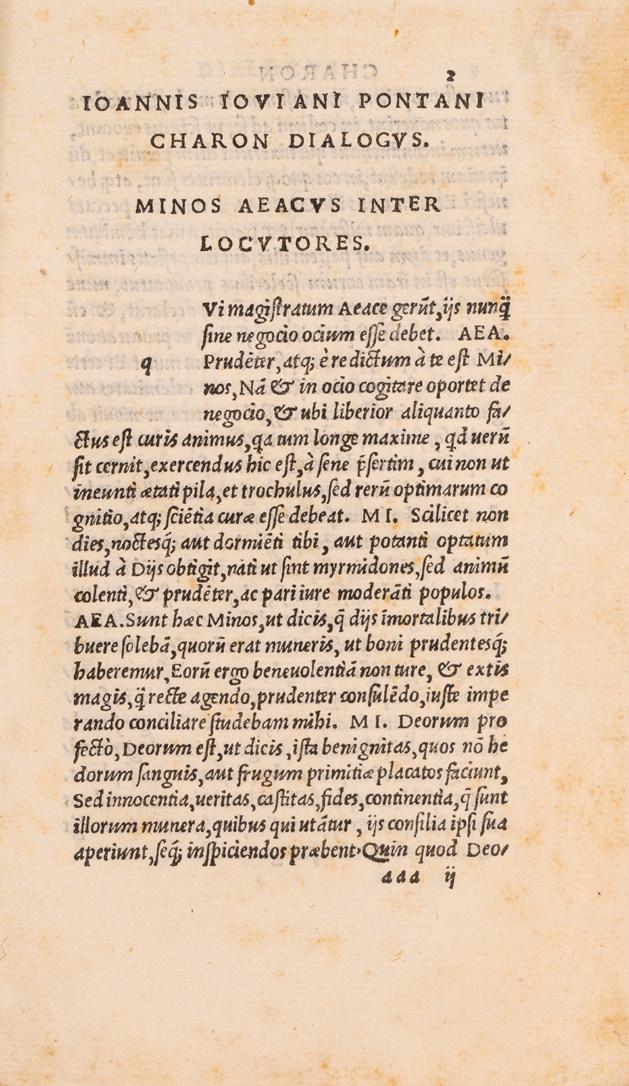 2
IOANNIS IOVIANI PONTANI
CHARON DIALOGVS.
MINOS AEACVS INTER
LOCVTORES.
Vi magistratum Aeace gerũt, ijs nunq̃
sine negocio ocium esse debet. AEA.
q
Prudẽter, atq; è re dictum à te est Mi/
nos, Nã & in ocio cogitare oportet de
negocio, & ubi liberior aliquanto fa/
ctus est curis animus, qa tum longe maxime, qd uerũ
sit cernit, exercendus hic est, à sene p̃sertim, cui non ut
ineunti ætati pila, et trochulus, sed rerũ optimarum co
gnitio, atq; sciẽtia curæ esse debeat. M I. Scilicet non
dies, noctesq; aut dormiẽti tibi, aut potanti optatum
illud à Dijs obtigit, nati ut sint myrmidones, sed animũ
colenti, & prudẽter, ac pari iure moderãti populos.
AEA. Sunt hæc Minos, ut dicis, q̃ dijs ĩmortalibus tri/
buere solebã, quorũ erat muneris, ut boni prudentesq;
haberemur, Eorũ ergo beneuolentiã non ture, & extis
magis, q̃ recte agendo, prudenter consulẽdo, iuste impe
rando conciliare studebam mihi. M I. Deorum pro
fectò, Deorum est, ut dicis, ista benignitas, quos nõ hę
dorum sanguis, aut frugum primitiæ placatos faciunt,
Sed innocentia, ueritas, castitas, fides, continentia, q̃ sunt
illorum munera, quibus qui utãtur, ijs consilia ipsi sua
aperiunt, seq; inspiciendos præbent. Quin quod Deo/
aaa ij